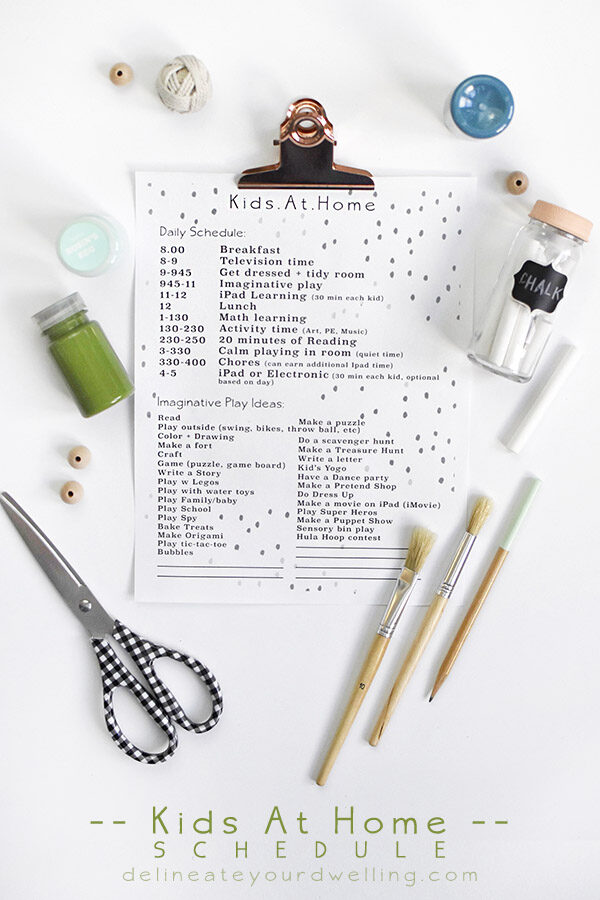 Kids.At.Home
Daily Schedule:
8.00 Breakfast
8-9 Television time
9-945 Get dressed + tidy room
945-11 Imaginative play
11-12 iPad Learning (30 min each kid)
12 Lunch
1-130 Math learning
130-230 Activity time (Art, PE, Music)
230-250 20 minutes of Reading
3-330 Calm playing in room (quiet time)
330-400 Chores (can earn additional Ipad time)
4-5 iPad or Electronic (30 min each kid, optional
based on day)
Imaginative Play Ideas:
Read
Play outside (swing, bikes, throw ball, etc)
Color + Drawing
Make a fort
Craft
Game (puzzle, game board)
Write a Story
Play w Legos
Play with water toys
Play Family/baby
Play School
Play Spy
Bake Treats
Make Origami
Play tic-tac-toe
Bubbles
Make a puzzle
Do a scavenger hunt
Make a Treasure Hunt
Write a letter
Kid's Yogo
Have a Dance party
Make a Pretend Shop
Do Dress Up
Make a movie on iPad (iMovie)
Play Super Heros
Make a Puppet Show
Sensory bin play
Hula Hoop contest
CHALK
-- Kids At Home --
SCHEDULE
delineateyourdwelling.com